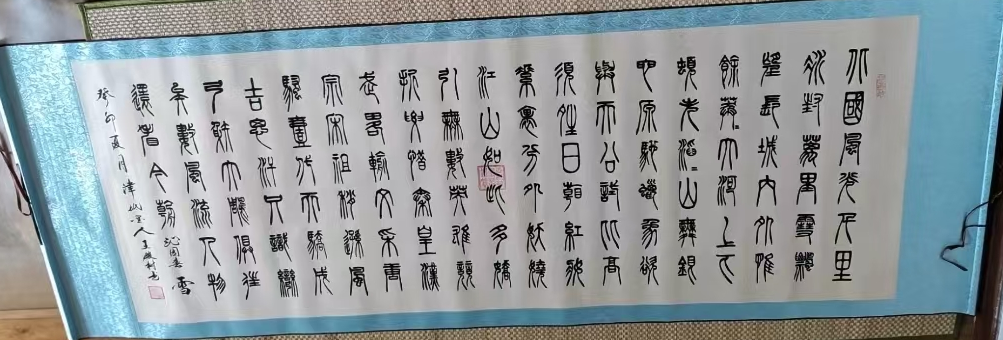 北國風光千里
冰封萬里雪飄
望長城內外惟
餘莽莽大河上下
頓失滔滔山舞銀
蛇原馳蠟象欲
與天公試比高
須晴日看紅裝
素裹分外妖嬈
江山如此多嬌
引無數英雄競
折腰惜秦皇漢
武略輸文采唐
宗宋祖稍遜風
騷壹代天驕成
吉思汗只識彎
弓射大雕俱往
矣數風流人物
還看今朝 沁園春 雪
癸卯夏月 人王 書